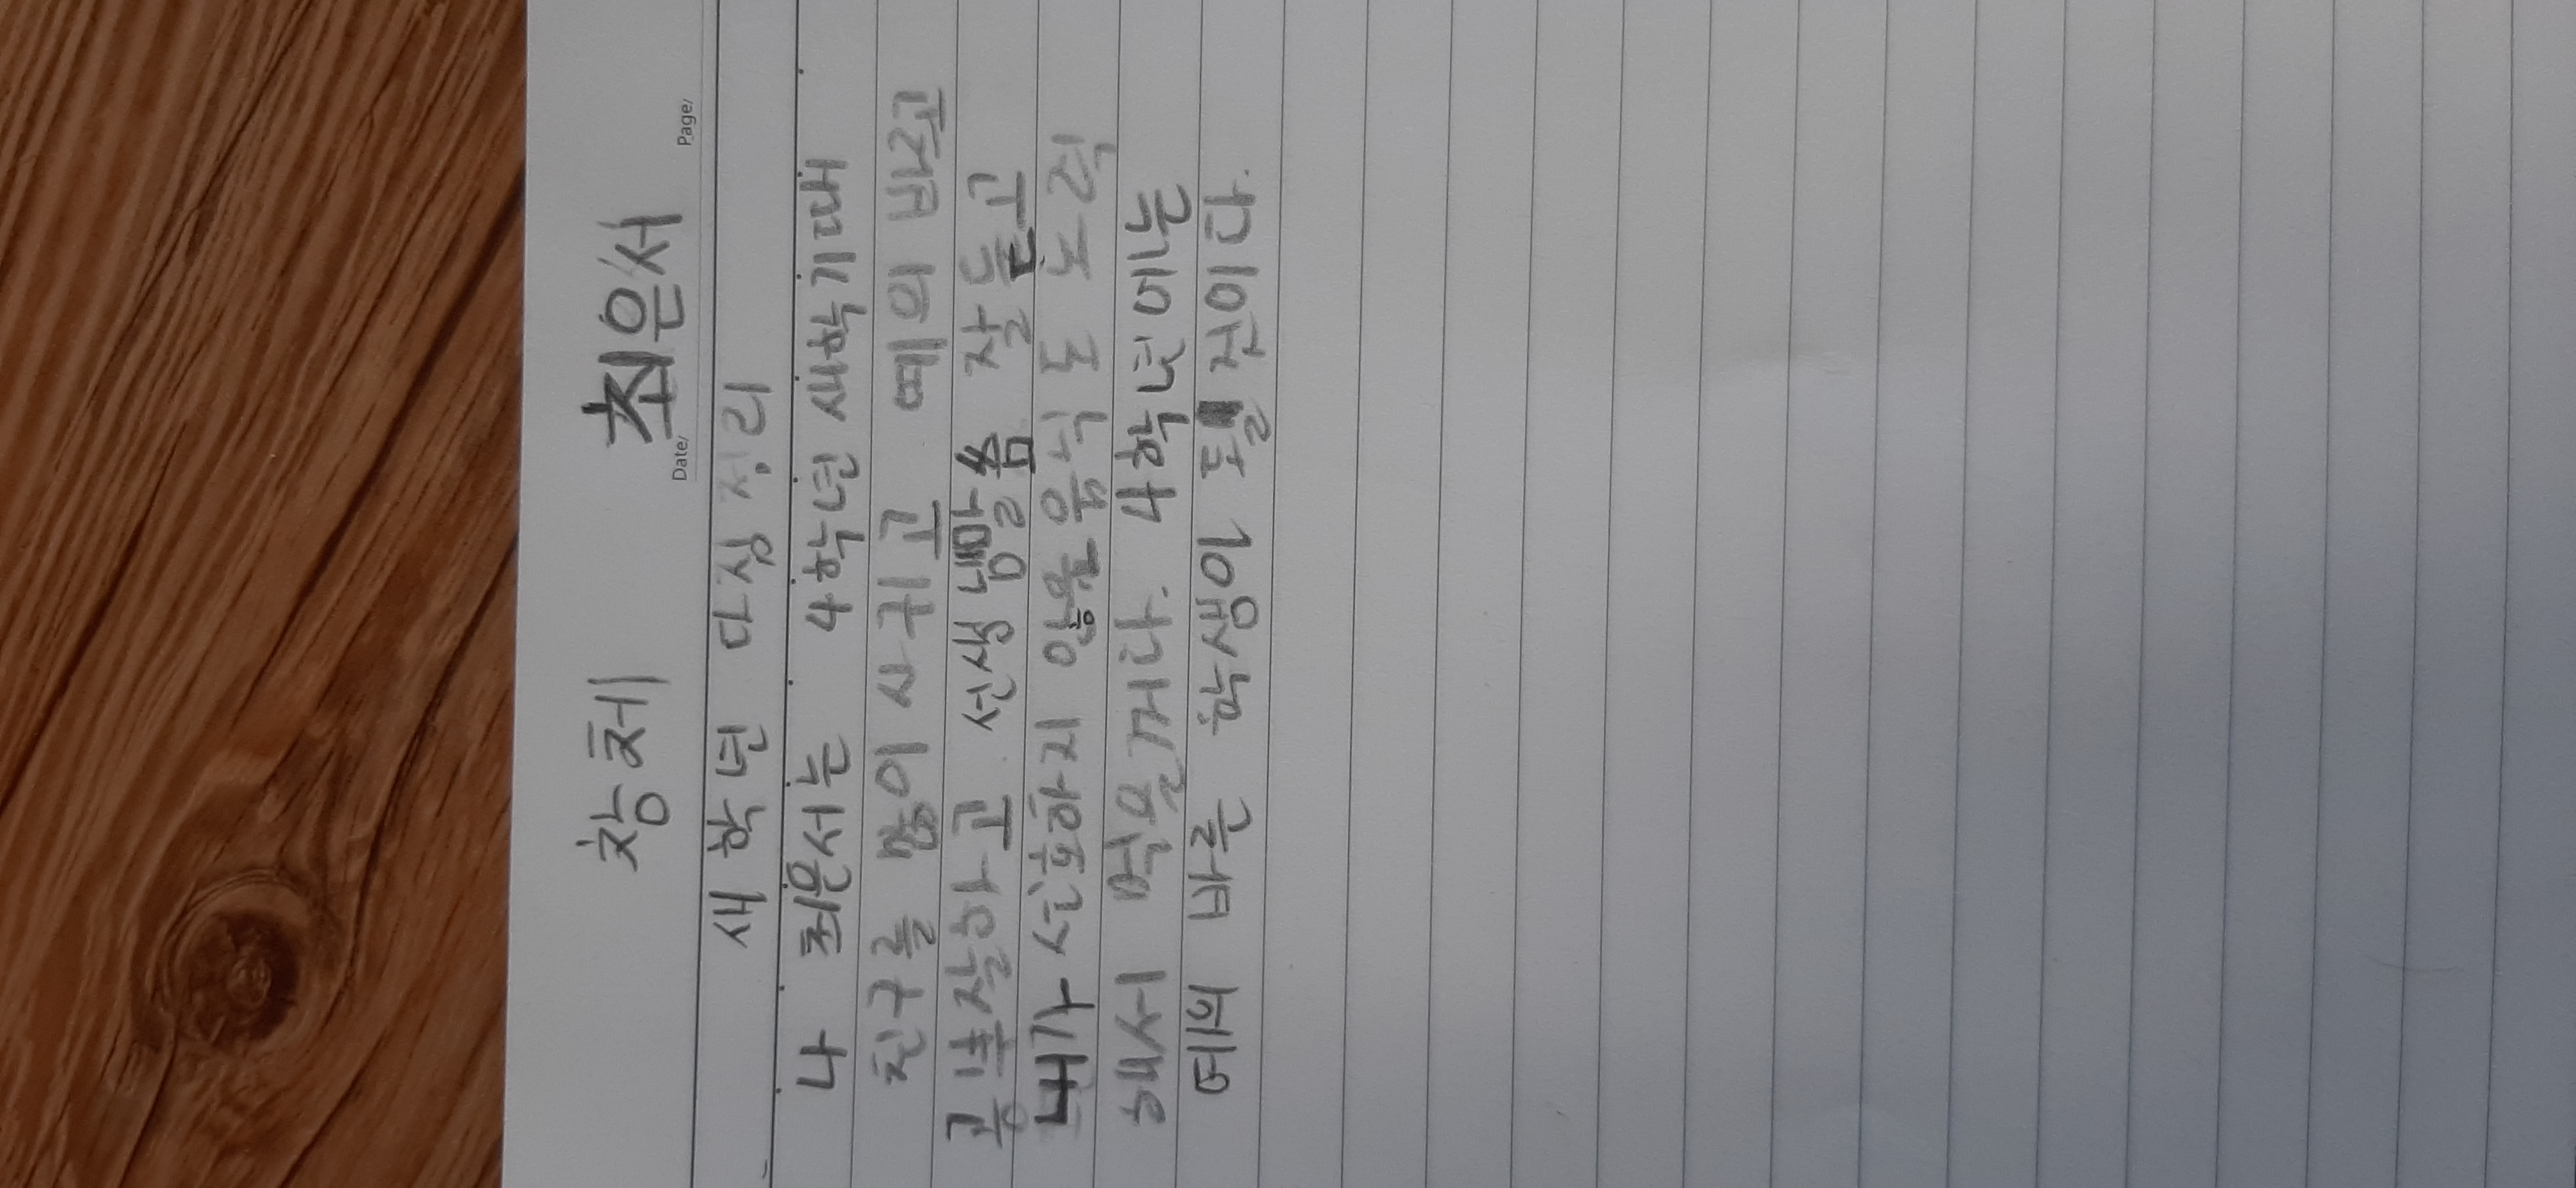 창체 최은서
Date/ Page/
새 학년 다짐 정리
나 최은서는 4학년 새학기때
친구를 많이 사귀고 예의 바르고
공부잘하고 선생님말씀 잘 듣고
내가 선호하지 않은 음식도 노력
해서 먹을거다. 4학년에는
예의 바른 학생이 될 것이다.